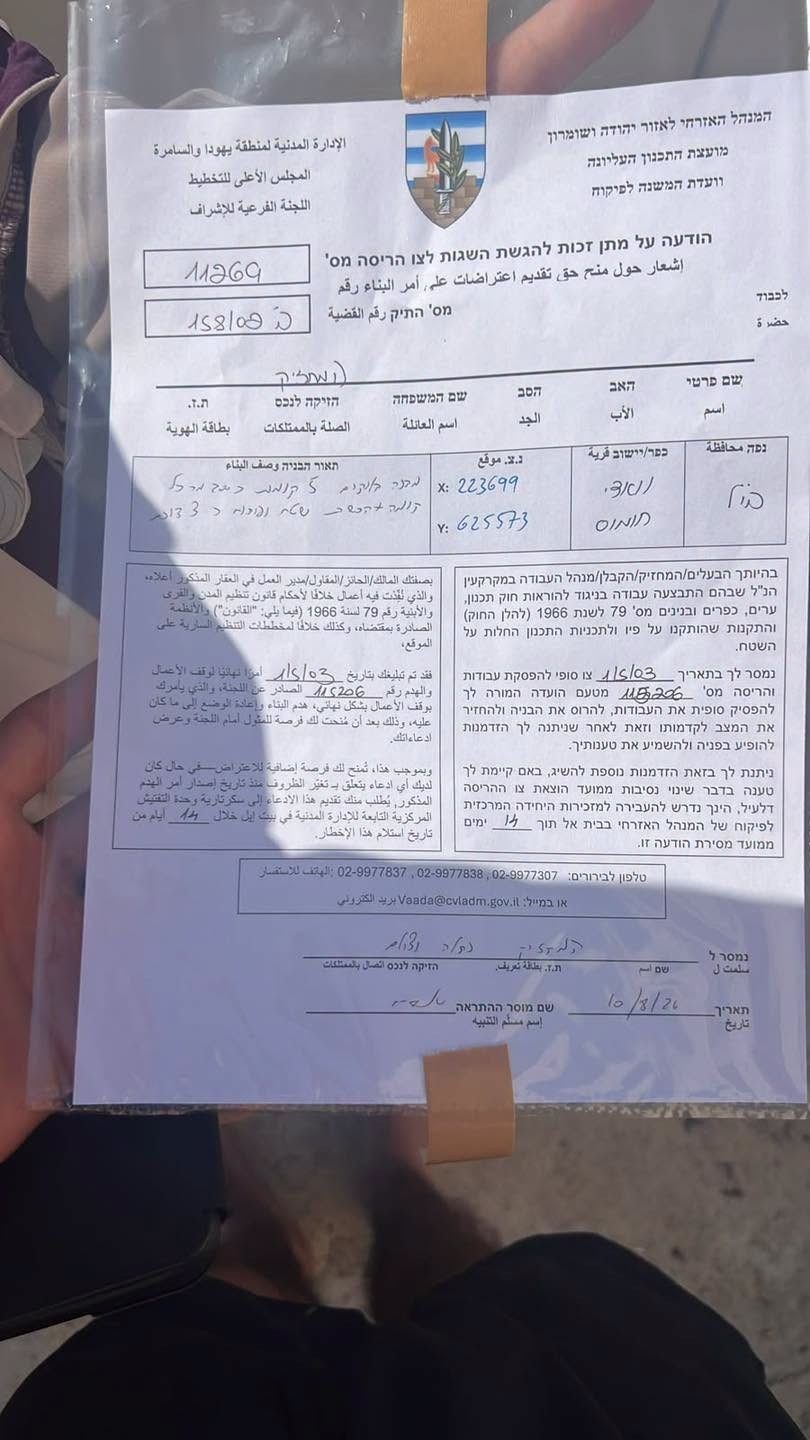 המנהל האזרחי לאזור יהודה ושומרון
מועצת התכנון העליונה
וועדת המשנה לפיקוח
الإدارة المدنية لمنطقة يهودا والسامرة
المجلس الأعلى للتخطيط
اللجنة الفرعية للإشراف
הודעה על מתן זכות להגשת השגות לצו הריסה מס'
إشعار حول منح حق تقديم اعتراضات على أمر البناء رقم
11269
מס' התיק رقم القضية
ב' 158/03
לכבוד
حضرة
המחזיק
שם פרטי האב הסב שם המשפחה הזיקה לנכס ת.ז.
اسم الأب الجد اسم العائلة الصلة بالممتلكات بطاقة الهوية
נפה محافظة כפר/יישוב قرية נ.צ. מוקע תאור הבניה وصف البناء
ואדי חומוס
X: 223699
Y: 625573
מבנה 5 קומות
בהיותך הבעלים/המחזיק/הקבלן/מנהל העבודה במקרקעין
הנ"ל שבהם התבצעה עבודה בניגוד להוראות חוק תכנון,
ערים, כפרים ובנינים מס' 79 לשנת 1966 (להלן החוק)
והתקנות שהותקנו על פיו ולתכניות התכנון החלות על
השטח.
נמסר לך בתאריך 1/5/03 צו סופי להפסקת עבודות
והריסה מס' 115206 מטעם הועדה המורה לך
להפסיק סופית את העבודות, להרוס את הבניה ולהחזיר
את המצב לקדמותו וזאת לאחר שניתנה לך הזדמנות
להופיע בפניה ולהשמיע את טענותיך.
ניתנת לך בזאת הזדמנות נוספת להשיג, באם קיימת לך
טענה בדבר שינוי נסיבות ממועד הוצאת צו ההריסה
דלעיל, הינך נדרש להעבירה למזכירות היחידה המרכזית
לפיקוח של המנהל האזרחי בבית אל תוך 14 ימים
ממועד מסירת הודעה זו.
بصفتك المالك/الحائز/المقاول/مدير العمل في العقار المذكور أعلاه،
والذي نُفِّذت فيه أعمال خلافًا لأحكام قانون تنظيم المدن والقرى
والأبنية رقم 79 لسنة 1966 (فيما يلي: "القانون") والأنظمة
الصادرة بمقتضاه، وكذلك خلافًا لمخططات التنظيم السارية على
الموقع،
فقد تم تبليغك بتاريخ 1/5/03 أمرًا نهائيًا لوقف الأعمال
والهدم رقم 115206 الصادر عن اللجنة، والذي يأمرك
بوقف الأعمال بشكل نهائي، هدم البناء وإعادة الوضع إلى ما كان
عليه، وذلك بعد أن مُنحت لك فرصة للمثول أمام اللجنة وعرض
ادعاءاتك.
وبموجب هذا، تُمنح لك فرصة إضافية للاعتراض—في حال كان
لديك أي ادعاء يتعلق بـ تغيّر الظروف منذ تاريخ إصدار أمر الهدم
المذكور، يُطلب منك تقديم هذا الادعاء إلى سكرتارية وحدة التفتيش
المركزية التابعة للإدارة المدنية في بيت إيل خلال 14 أيام من
تاريخ استلام هذا الإخطار.
טלפון לבירורים: 02-9977307 , 02-9977838 , 02-9977837 :الهاتف للاستفسار
או במייל: Vaada@cvladm.gov.il بريد الكتروني
נמסר ל המחזיק
سلمت ل שם اسم ת.ז. بطاقة تعريف. הזיקה לנכס اتصال بالممتلكات
תאריך 10/8/26 שם מוסר ההתראה
تاريخ إسم مسلّم التنبيه